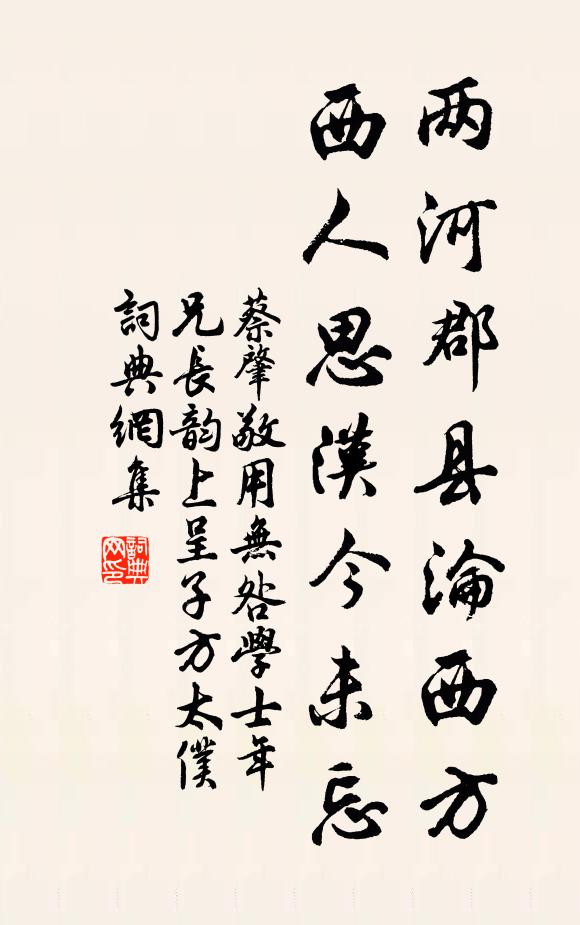 两河郡县沦西方
西人思漢今未忘
蔡肇敬用無咎學士年
兄長韵上呈子方太僕
詞典網集
詞典
网印